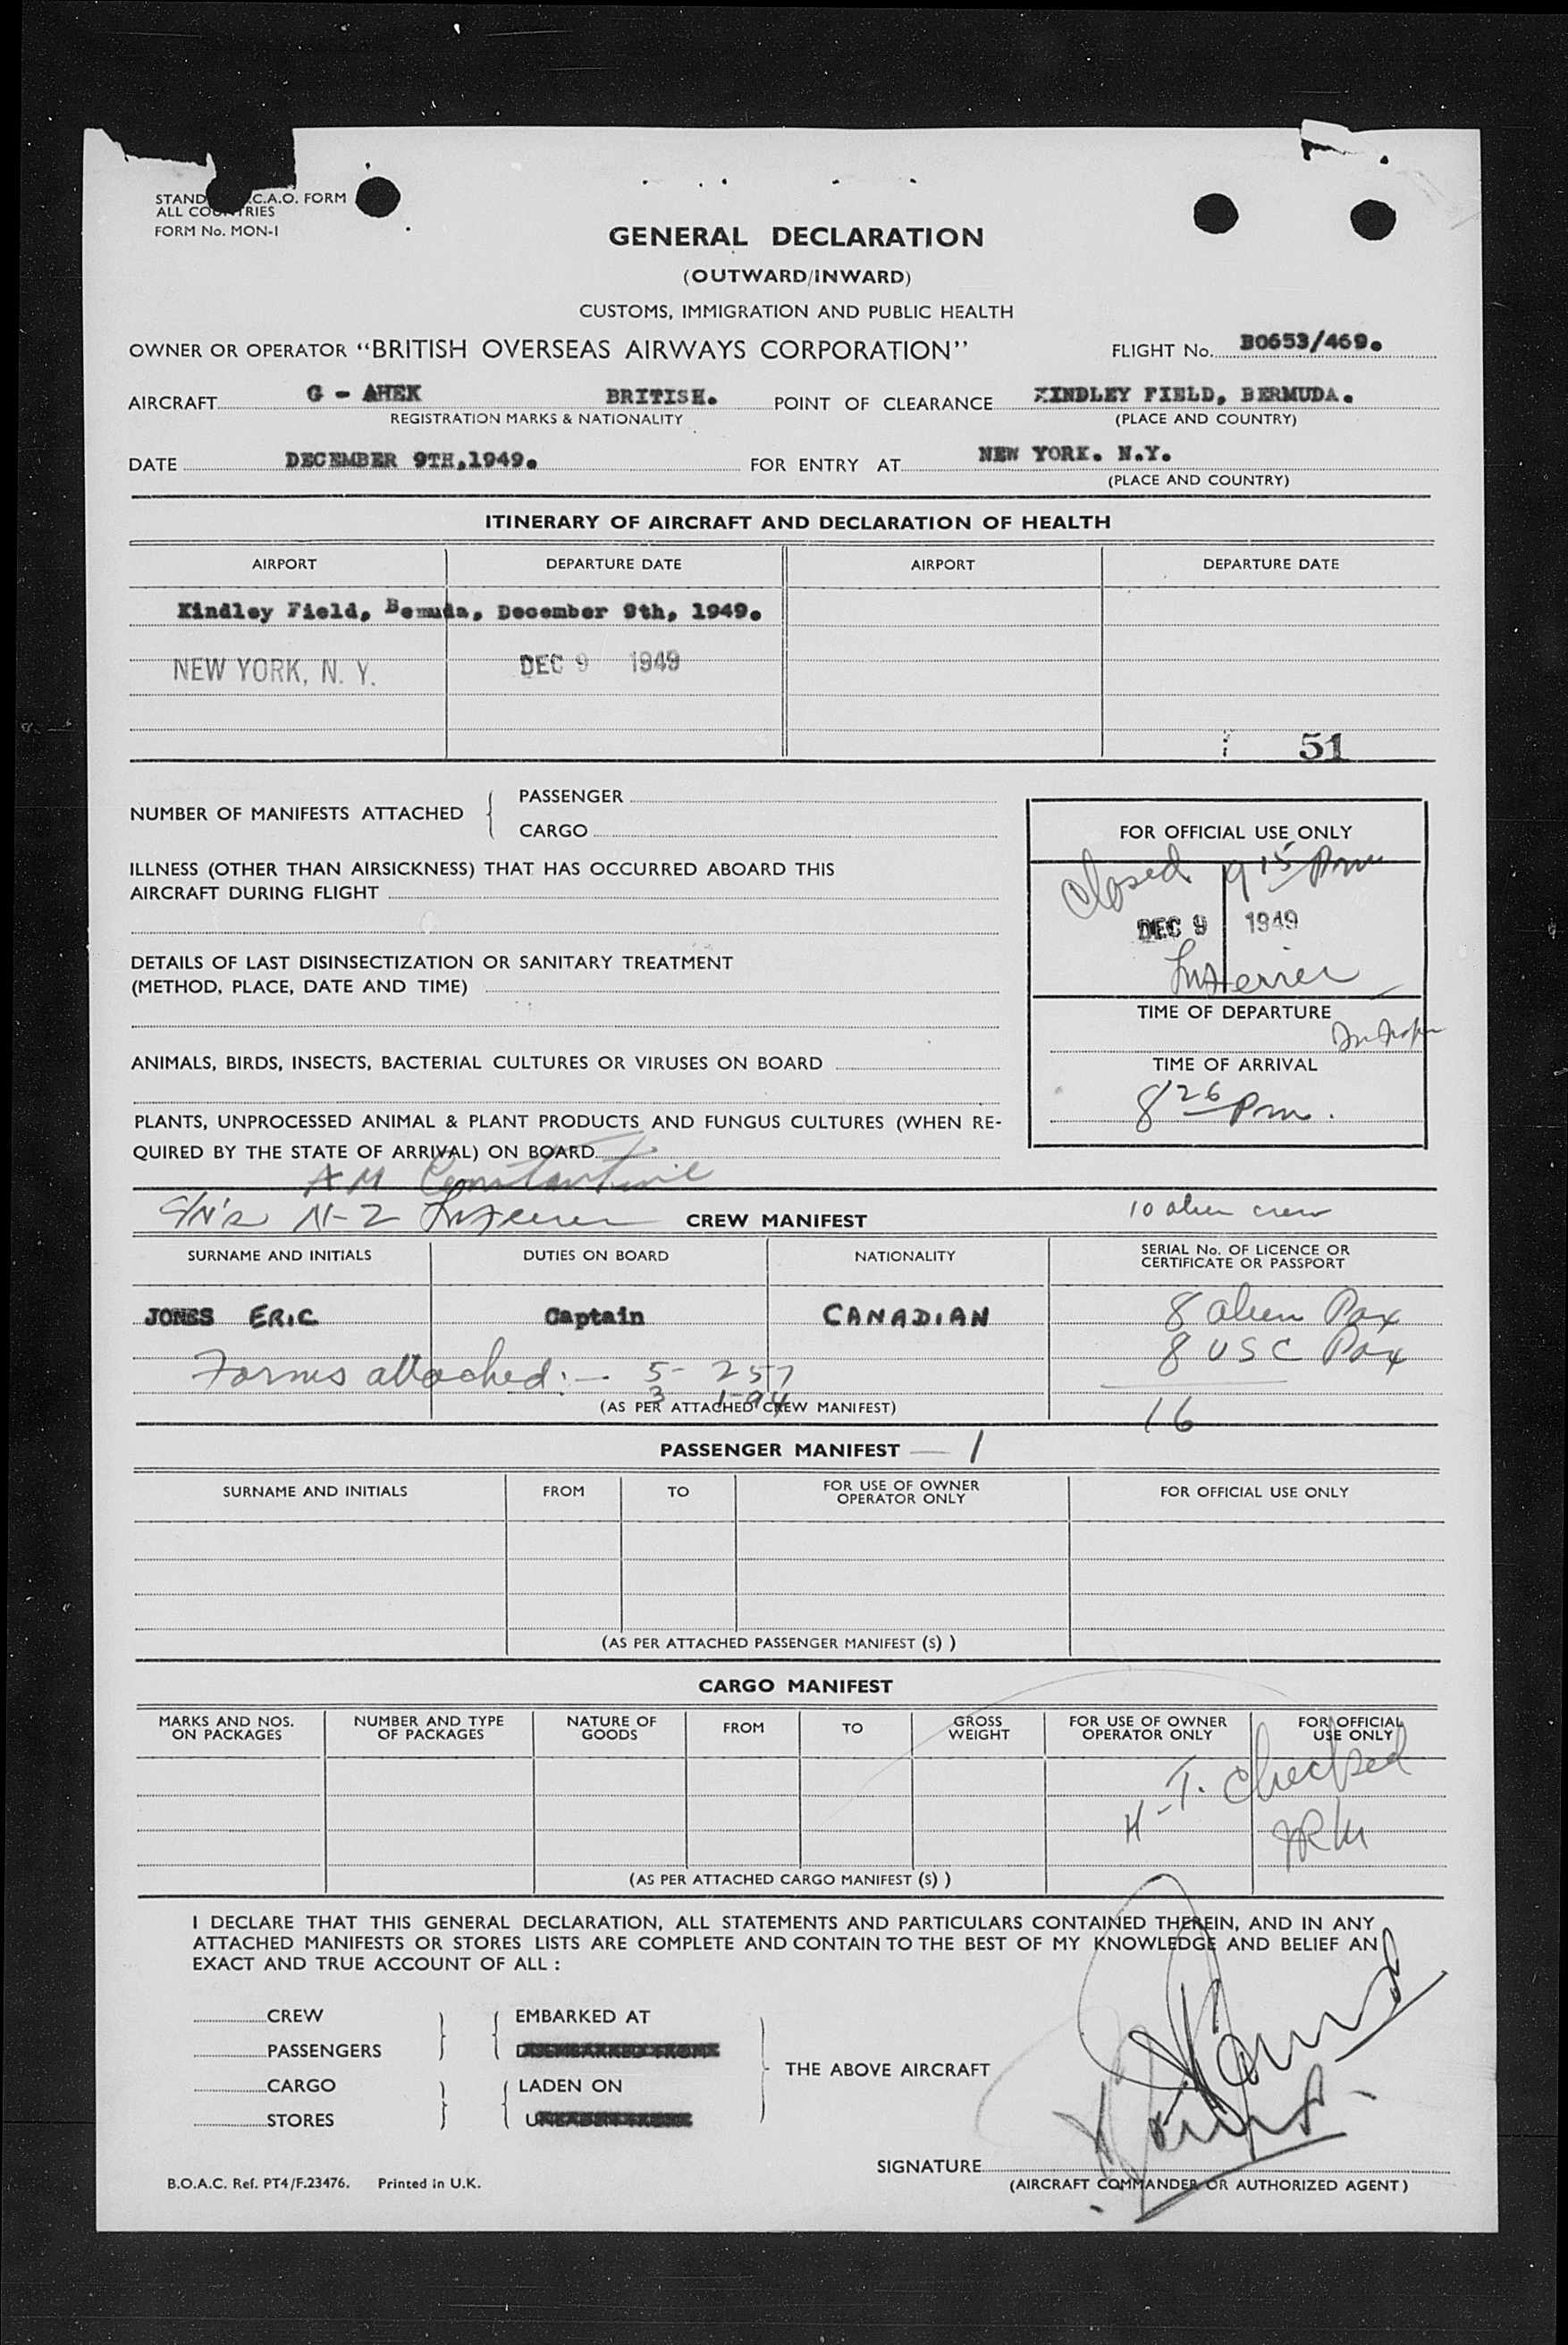 STAND C.A.O. FORM
ALL COUNTRIES
FORM No. MON-I
GENERAL DECLARATION
(OUTWARD/INWARD)
CUSTOMS, IMMIGRATION AND PUBLIC HEALTH
OWNER OR OPERATOR "BRITISH OVERSEAS AIRWAYS CORPORATION" FLIGHT No. B0653/469.
AIRCRAFT G - AHEK BRITISH. POINT OF CLEARANCE KINDLEY FIELD, BERMUDA.
REGISTRATION MARKS & NATIONALITY (PLACE AND COUNTRY)
DATE DECEMBER 9TH,1949. FOR ENTRY AT NEW YORK. N.Y.
(PLACE AND COUNTRY)
ITINERARY OF AIRCRAFT AND DECLARATION OF HEALTH
AIRPORT DEPARTURE DATE AIRPORT DEPARTURE DATE
Kindley Field, Bemuda, December 9th, 1949.
NEW YORK, N. Y. DEC 9 1949
51
NUMBER OF MANIFESTS ATTACHED { PASSENGER
CARGO
ILLNESS (OTHER THAN AIRSICKNESS) THAT HAS OCCURRED ABOARD THIS
AIRCRAFT DURING FLIGHT
DETAILS OF LAST DISINSECTIZATION OR SANITARY TREATMENT
(METHOD, PLACE, DATE AND TIME)
ANIMALS, BIRDS, INSECTS, BACTERIAL CULTURES OR VIRUSES ON BOARD
PLANTS, UNPROCESSED ANIMAL & PLANT PRODUCTS AND FUNGUS CULTURES (WHEN RE-
QUIRED BY THE STATE OF ARRIVAL) ON BOARD
FOR OFFICIAL USE ONLY
Closed 9 15 pm
DEC 9 1949
TIME OF DEPARTURE
TIME OF ARRIVAL
8 26 pm.
A M Constantine
N-2 CREW MANIFEST 10 alien crew
SURNAME AND INITIALS DUTIES ON BOARD NATIONALITY SERIAL No. OF LICENCE OR
CERTIFICATE OR PASSPORT
JONES ERIC Captain CANADIAN 8 alien Pax
8 USC Pax
Forms attached:- 5- 257
3 1-94
(AS PER ATTACHED CREW MANIFEST) 16
PASSENGER MANIFEST — 1
SURNAME AND INITIALS FROM TO FOR USE OF OWNER
OPERATOR ONLY FOR OFFICIAL USE ONLY
(AS PER ATTACHED PASSENGER MANIFEST (S) )
CARGO MANIFEST
MARKS AND NOS.
ON PACKAGES NUMBER AND TYPE
OF PACKAGES NATURE OF
GOODS FROM TO GROSS
WEIGHT FOR USE OF OWNER
OPERATOR ONLY FOR OFFICIAL
USE ONLY
H-T. checked
(AS PER ATTACHED CARGO MANIFEST (S) )
I DECLARE THAT THIS GENERAL DECLARATION, ALL STATEMENTS AND PARTICULARS CONTAINED THEREIN, AND IN ANY
ATTACHED MANIFESTS OR STORES LISTS ARE COMPLETE AND CONTAIN TO THE BEST OF MY KNOWLEDGE AND BELIEF AN
EXACT AND TRUE ACCOUNT OF ALL :
CREW EMBARKED AT
PASSENGERS
THE ABOVE AIRCRAFT
CARGO LADEN ON
STORES
SIGNATURE
(AIRCRAFT COMMANDER OR AUTHORIZED AGENT)
B.O.A.C. Ref. PT4/F.23476. Printed in U.K.